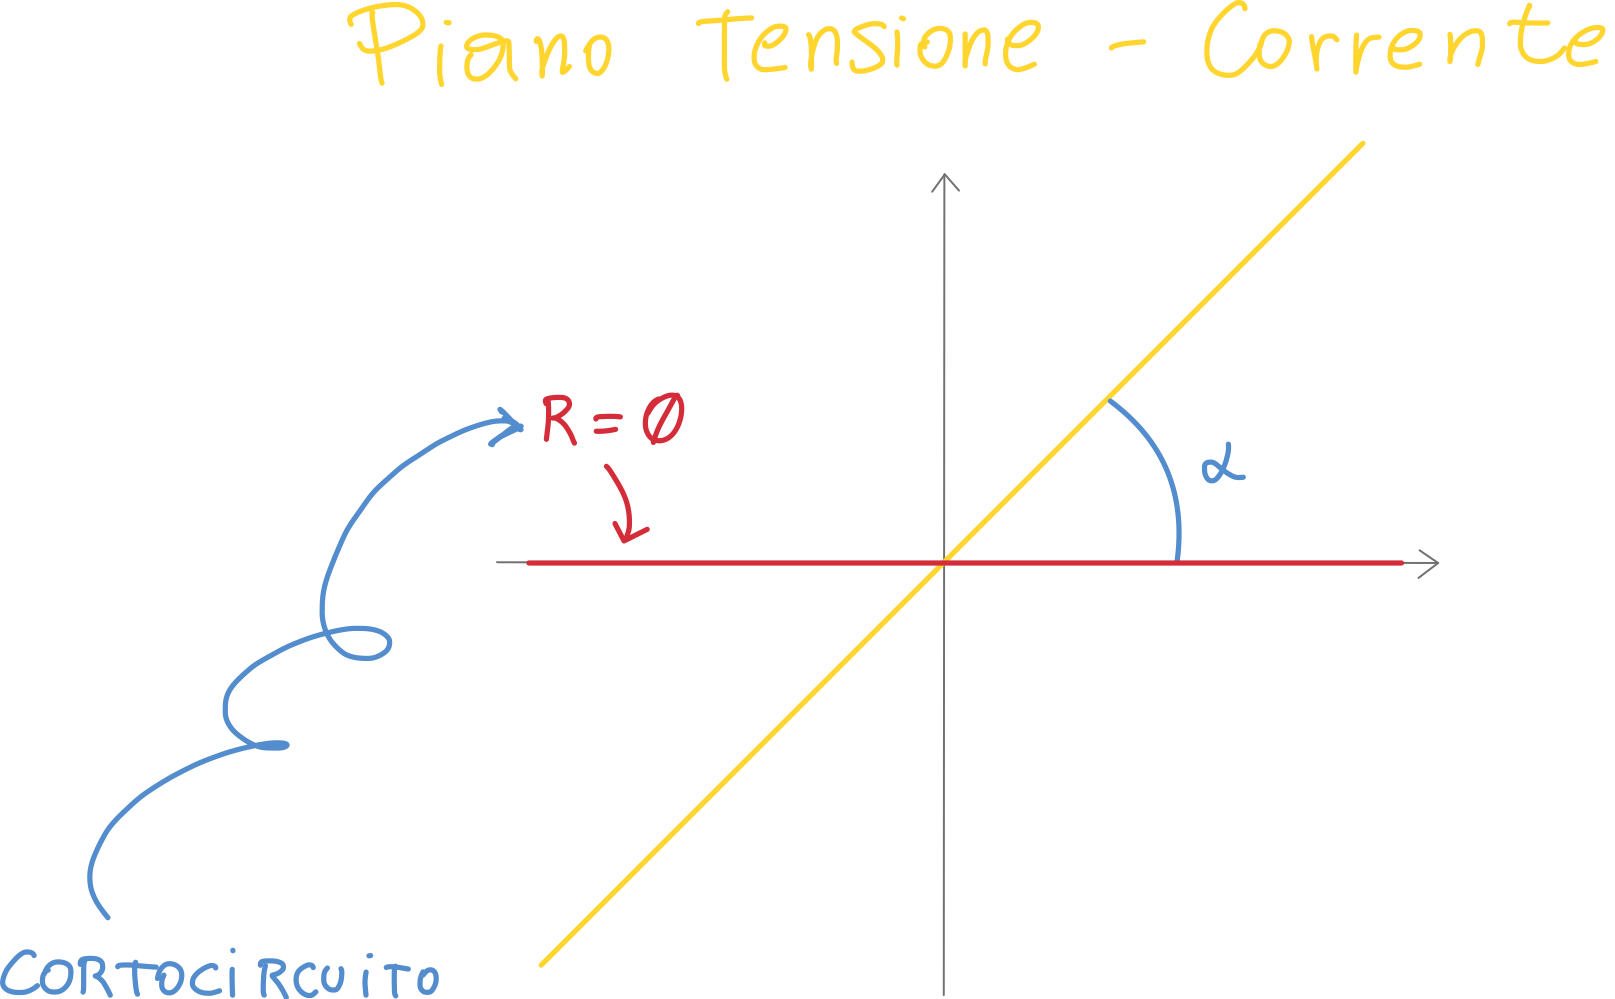 Piano Tensione - Corrente
R = Ø
α
CORTOCiRCUiTO